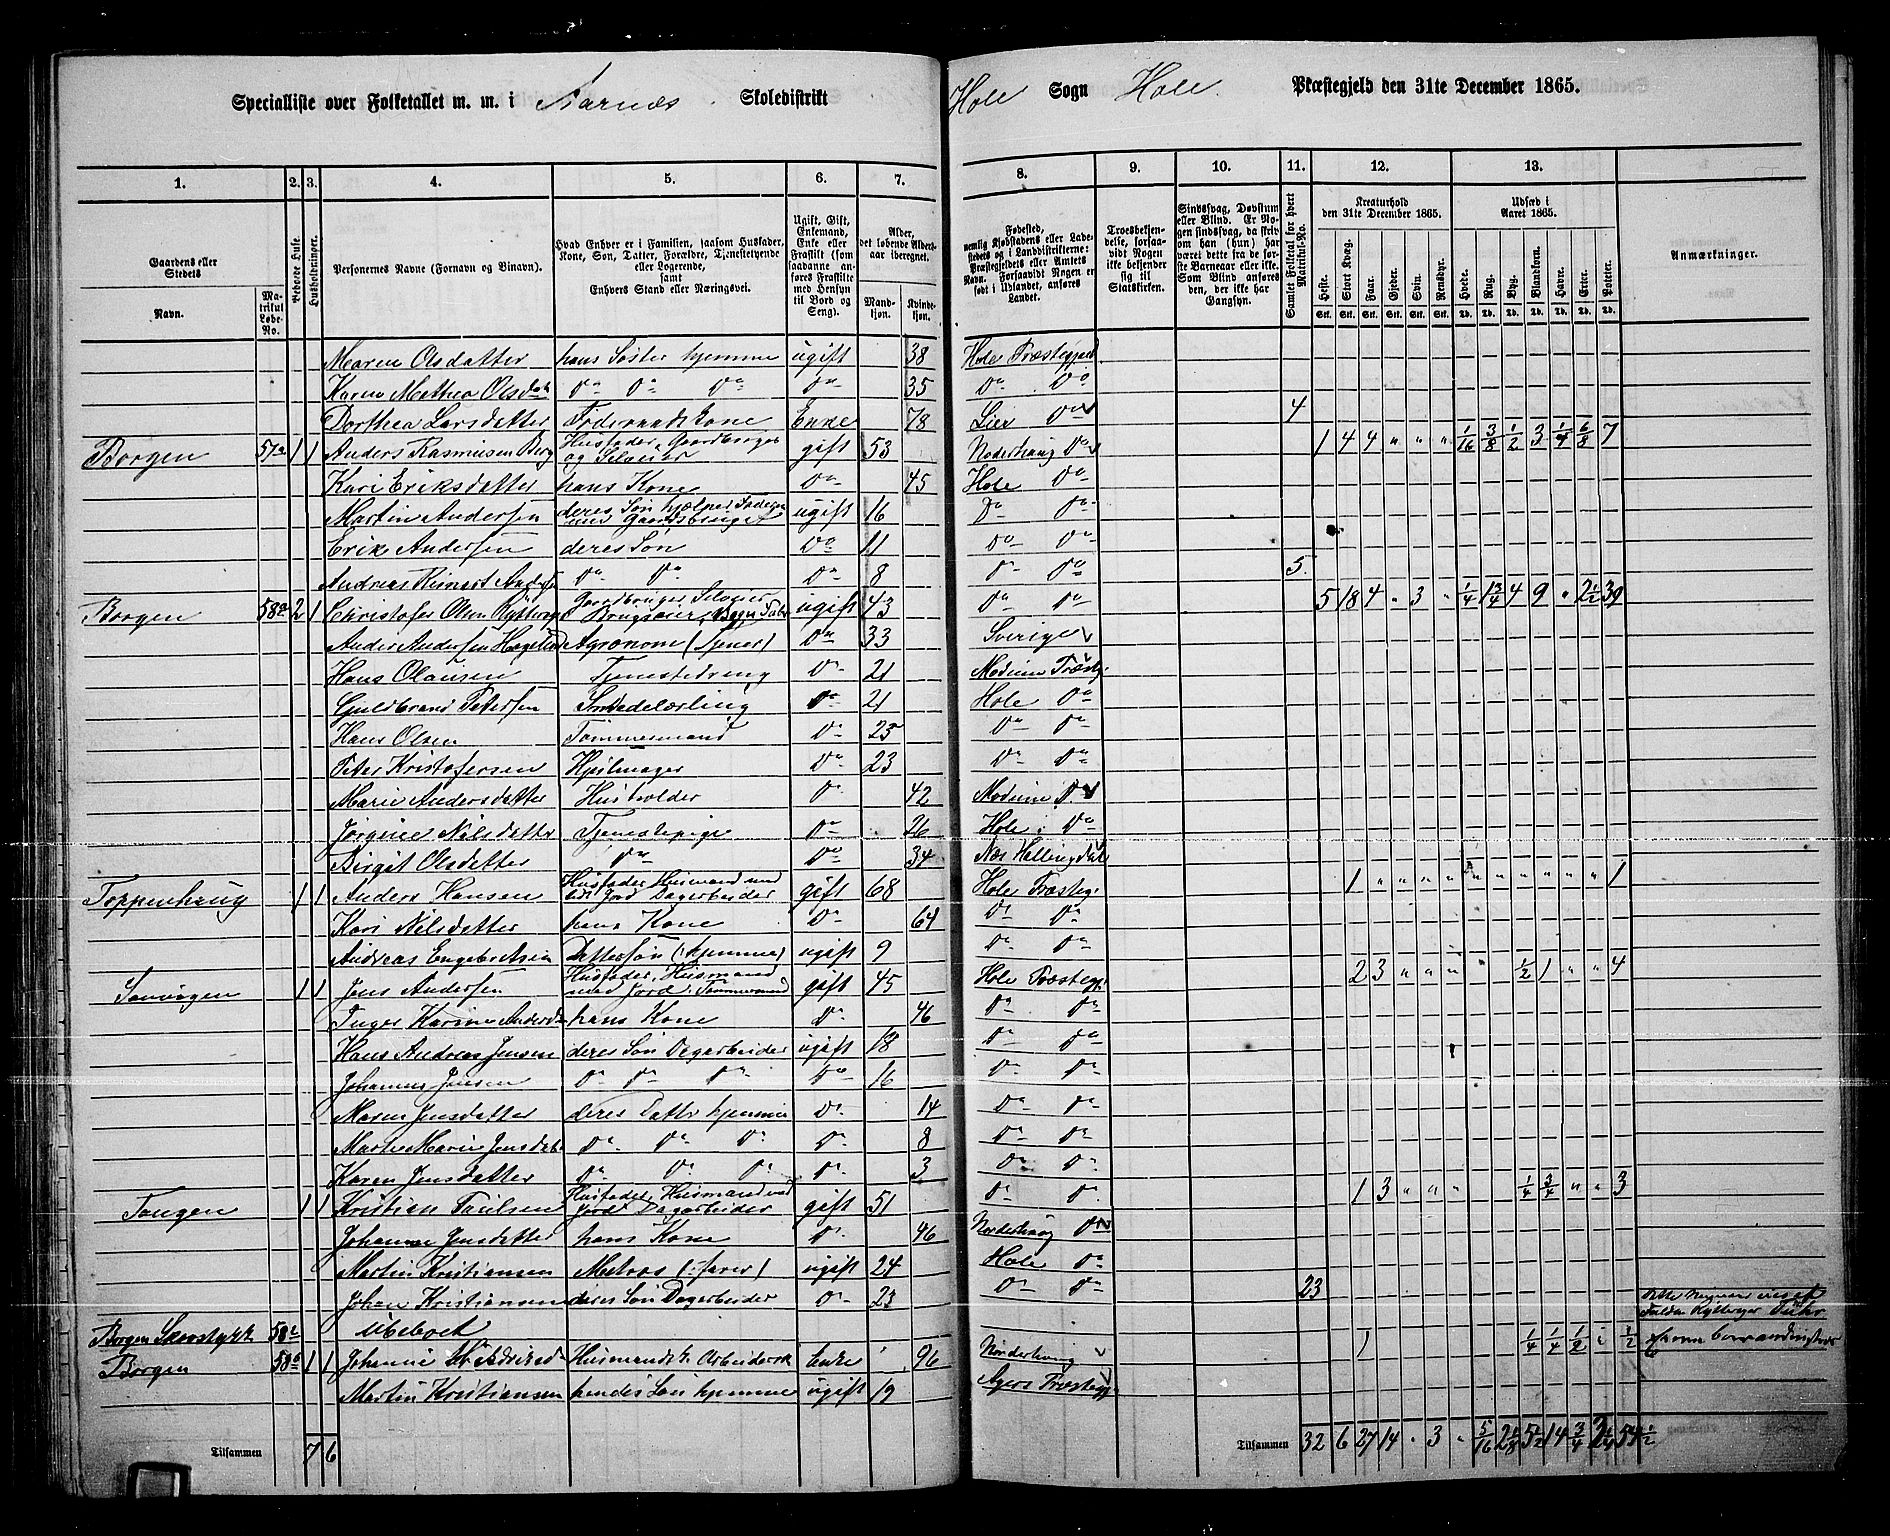 Specialliste over Folketallet m. m. i Aarnæs Skoledistrikt Hole Sogn Hole Præstegjeld den 31te December 1865.
1. 2. 3. 4. 5. 6. 7. 8. 9. 10. 11. 12. 13.
Gaardens eller Stedets
Navn.
Matrikul Løbe-No.
Beboede Huse.
Husholdninger.
Personernes Navne (Fornavn og Binavn).
Hvad Enhver er i Familien, saasom Husfader, Kone, Søn, Datter, Forældre, Tjenestetyende eller Logerende,
samt
Enhvers Stand eller Næringsvei.
Ugift, Gift, Enkemand, Enke eller Fraskilt (som saadanne anføres Fraskilte med Hensyn til Bord og Seng).
Alder, det løbende Aldersaar iberegnet.
Mandkjøn.
Kvindekjøn.
Fødested,
nemlig Kjøbstadens eller Ladestedets og i Landdistrikterne: Præstegjeldets eller Amtets Navn. Forsaavidt Nogen er født i Udlandet, anføres Landet.
Troesbekjendelse, forsaavidt Nogen ikke bekjender sig til Statskirken.
Sindssvag, Døvstum eller Blind. Er Nogen sindssvag, da skrives om han (hun) har været det før sørste Barneaar eller ikke. Som Blind anføres den, der ikke har Gangsyn.
Samlet Folketal for hvert Matrikul-No.
Kreaturhold den 31te December 1865.
Heste. Stort Kvæg. Faar. Gjeder. Svin. Rensdyr.
Udsæd i Aaret 1865.
Hvede. Rug. Byg. Blandkorn. Havre. Erter. Poteter.
Anmærkninger.
Maren Olsdatter hans Søster hjemme ugift 38 Hole Præstegjeld
Karen Mathea Olsdatt Do Do Do Do 35 Do Do
Dorthea Larsdatter Føderaadskone Enke 78 Lier Do 4
Borgen 57a 1 1 Anders Rasmusen Berg Husfader, Gaardbruger og Selveier gift 53 Norderhaug Do 1 4 4 " " " 1/16 3/8 1/2 3 1/4 6/8 7
Kari Eriksdatter hans Kone Do 45 Hole Do
Martin Andersen deres Søn hjælper Faderen med Gaardsbruget ugift 16 Do Do
Erik Andersen deres Søn Do 11 Do Do
Andreas Reinert Anders Do Do Do 8 Do Do 5.
Borgen 58a 2 1 Christofer Olsen Rytterag Gaardbruger Selveier ugift 43 Do Do 5 18 4 " 3 " 1/4 1 3/4 4 9 " 2 1/2 39
Anders Andersen Hagelund Agronom (Tjener) Do 33 Sverige
Hans Olausen Tjenestedreng Do 21 Modum Præsteg
Guldbrand Petersen Smedelærling Do 21 Hole Do
Hans Olsen Tømmermand Do 25 Do Do
Peter Kristofersen Hjulmager Do 23 Do Do
Marie Andersdatter Husholder Do 42 Modum Do
Jørgine Nilsdatter Tjenestepige Do 26 Hole Do
Birgit Olsdatter Do Do 34 Næs Hallingdal
Toppenhaug 1 1 Anders Hansen Husfader Husmand med Jord Dagarbeider gift 68 Hole Præsteg. 1 " " " " " " " " " " " 1
Kari Nilsdatter hans Kone Do 64 Do Do
Andreas Engebretsen Dattersøn (hjemme) ugift 9 Do Do
Sonvigen 1 1 Jens Andersen Husfader, Husmand med Jord, Tømmermand gift 45 Hole Præsteg. 2 3 " " " 1/2 1 " " 4
Inger Karine Andersd hans Kone Do 46 Do Do
Hans Andreas Jensen deres Søn Dagarbeider ugift 18 Do Do
Johannes Jensen Do Do Do Do 16 Do Do
Maren Jensdatter deres Datter hjemme Do 14 Do Do
Marte Marie Jensdatt Do Do Do Do 8 Do Do
Karen Jensdatter Do Do Do Do 3 Do Do
Tangen 1 1 Kristian Paulsen Husfader, Husmand med Jord Dagarbeider gift 51 Do Do 1 3 " " " 1/4 3/4 " " 3
Johanne Jensdatter hans Kone Do 46 Norderhaug Do
Martin Kristiansen Matros (farer) ugift 24 Hole Do
Johan Kristiansen deres Søn Dagarbeider Do 23 Do Do 23
Borgen 58 Ubeboet
Borgen 58b 1 1 Johanne Husmandsk. Enke 46 Norderhaug 1 1/4 1/4 1/2 1/2
Martin Kristiansen hendes Søn hjemme ugift 19 Agers Præstegj
Tilsammen 7 6
Tilsammen 32 6 27 14 " 3 " 5/16 2 1/8 5 1/2 14 3/4 54 1/2